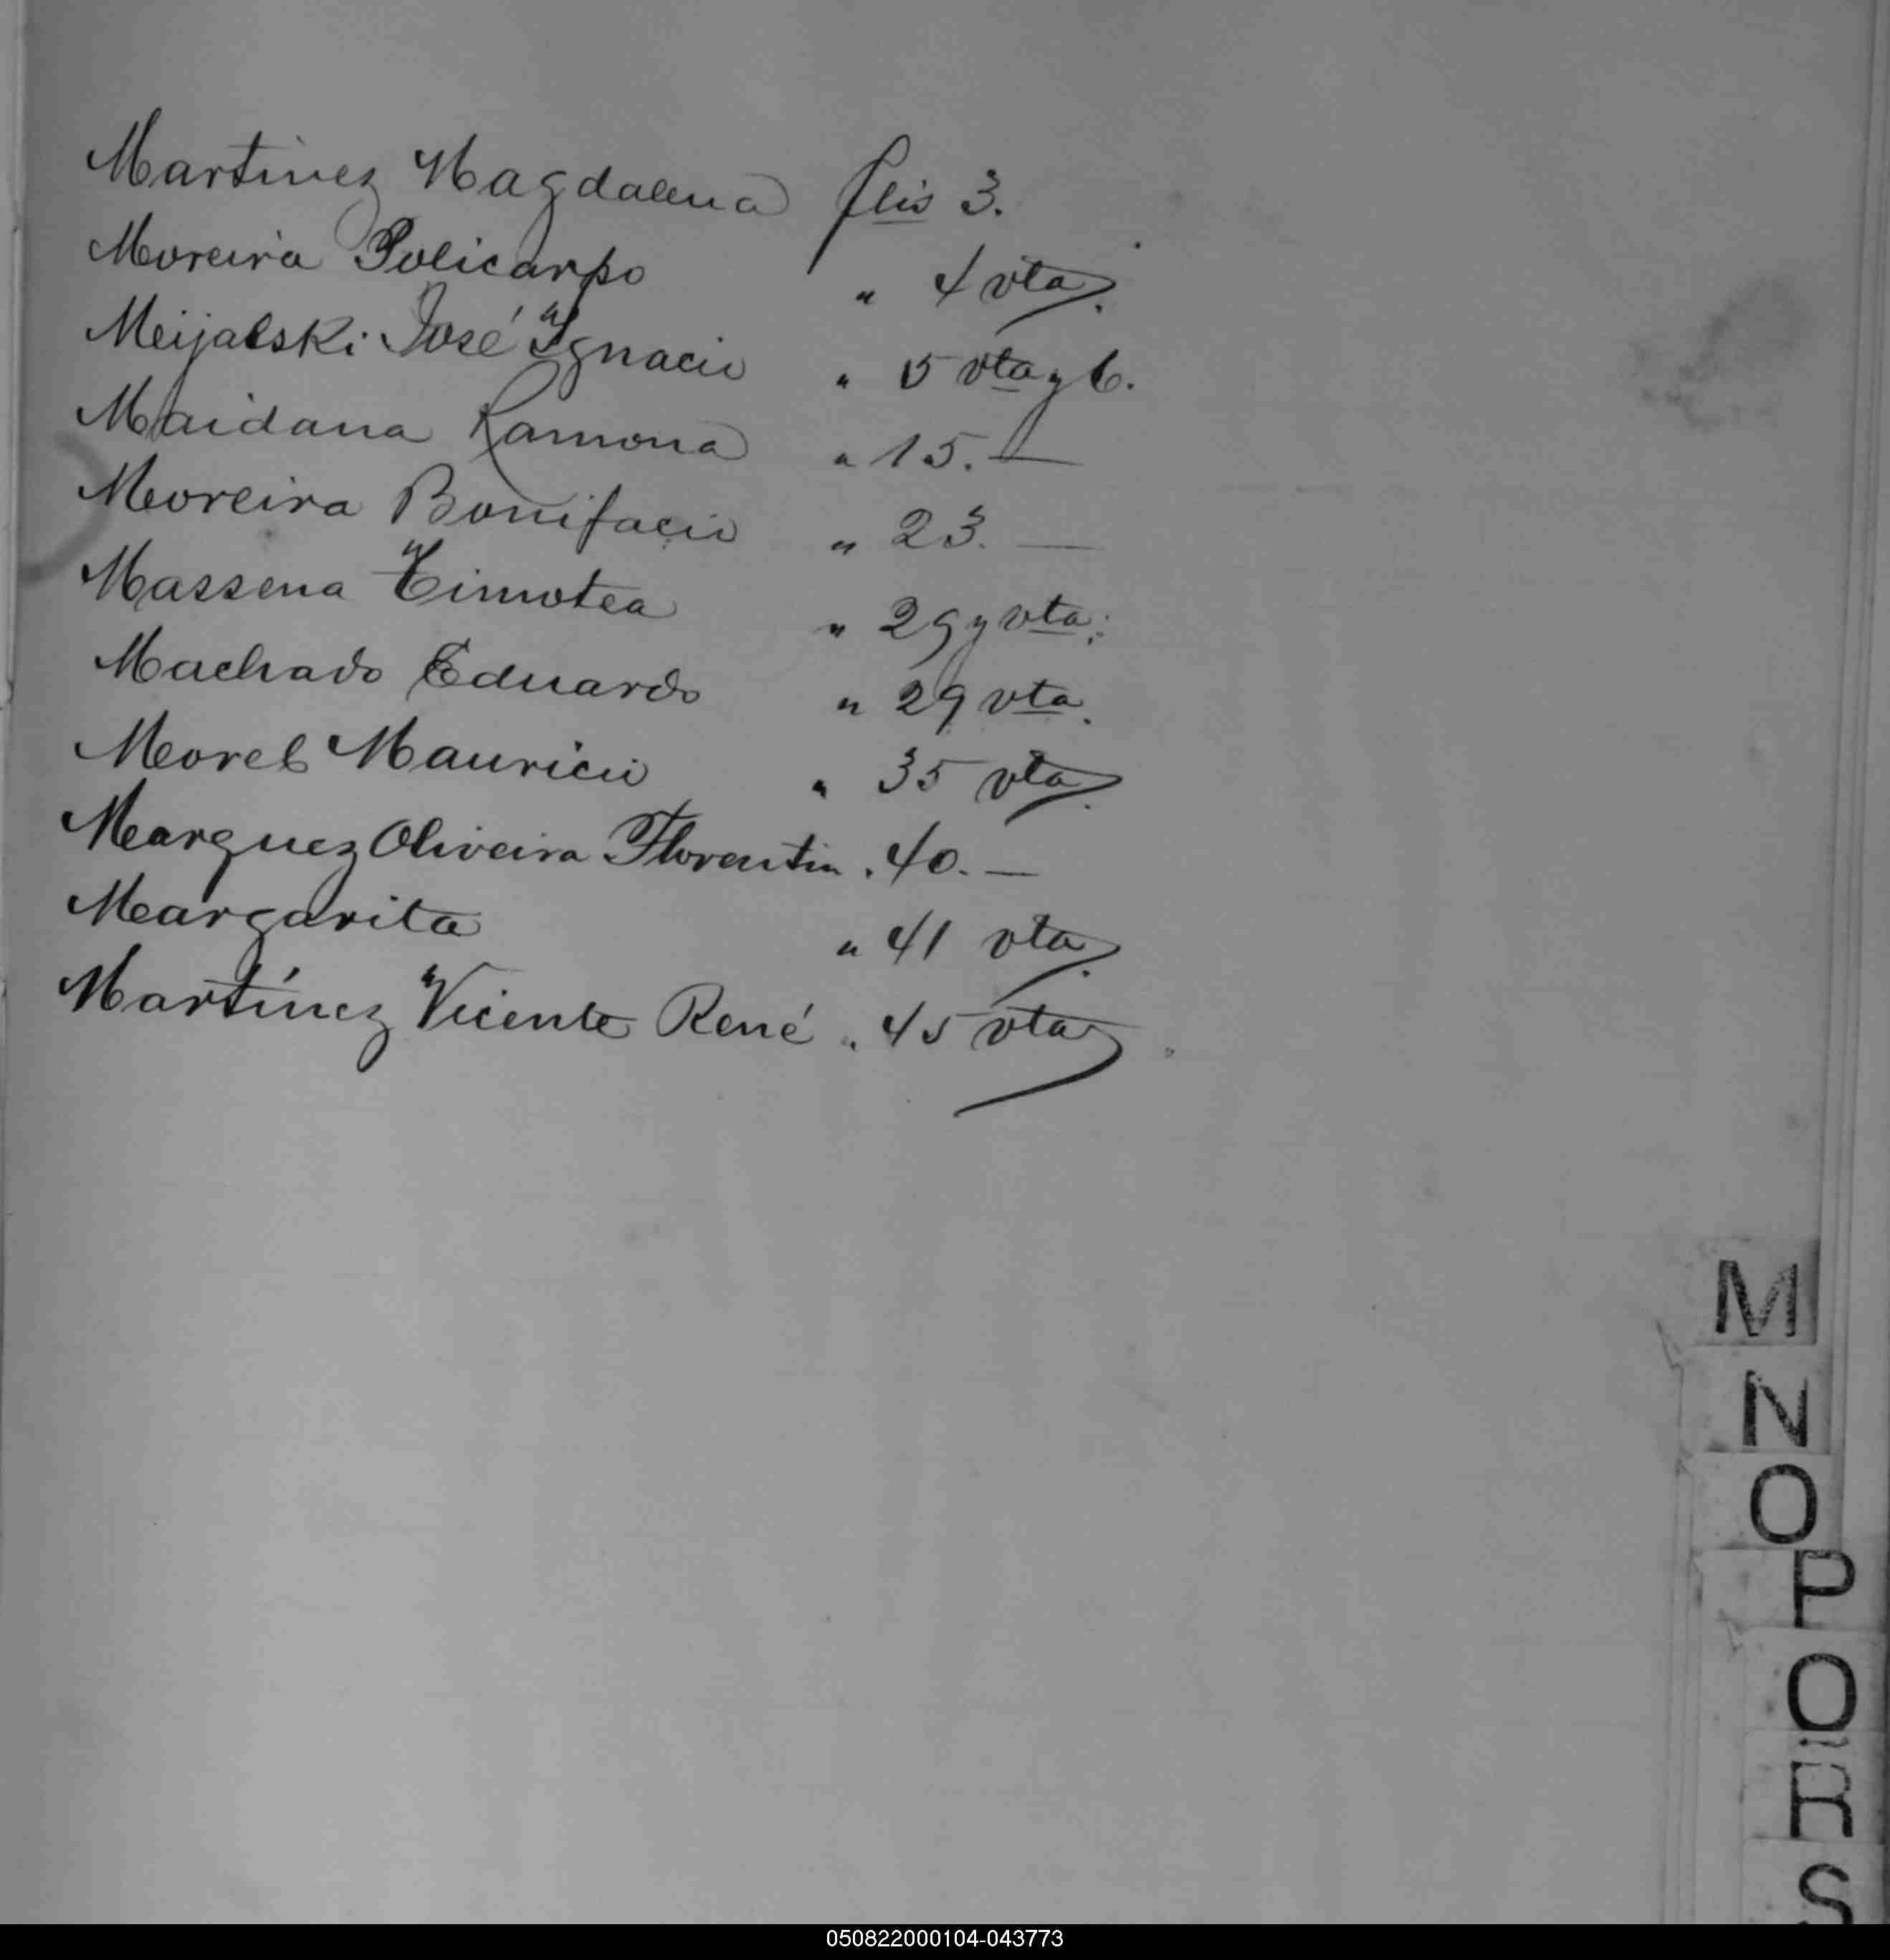 Martinez Magdalena flis 3.
Moreira Policarpo " 4 vta.
Meijalski José Ygnacio " 5 vta y 6.
Maidana Ramona " 15. —
Moreira Bonifacio " 23. —
Massena Timotea " 29 y vta.
Machado Eduardo " 29 vta.
Morel Mauricio " 35 vta.
Marquez Oliveira Florentin " 40. —
Margarita " 41 vta.
Martínez Vicente René " 45 vta
M
N
O
P
Q
R
S
050822000104-043773